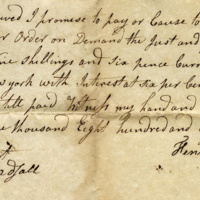 I promise to pay or Cause to
Order on Demand the Just and
Shillings and Six pence Curr
york with Interest at six per Cen
till paid Witness my hand and
thousand Eight hundred and
Hen